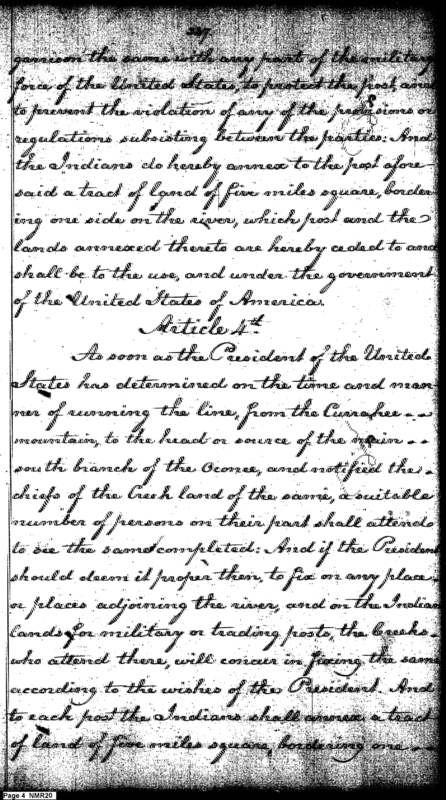 327.
garrison the same with any part of the military
force of the United States, to protect the post, and
to prevent the violation of any of the provisions or
regulations subsisting between the parties: And
the Indians do hereby annex to the post afore-
said a tract of land of five miles square, border-
ing one side on the river, which post and the
lands annexed thereto are hereby ceded to and
shall be to the use, and under the government
of the United States of America.
Article 4th
As soon as the President of the United
States has determined on the time and man-
ner of running the line, from the Currahee
mountain, to the head or source of the main
south branch of the Oconee, and notified the
chiefs of the Creek land of the same, a suitable
number of persons on their part shall attend
to see the same completed: And if the President
should deem it proper then, to fix on any place,
or places adjoining the river, and on the Indian
lands for military or trading posts, the Creeks
who attend there, will concur in fixing the same
according to the wishes of the President. And
to each post the Indians shall annex a tract
of land of five miles square, bordering one
Page 4 NMR20